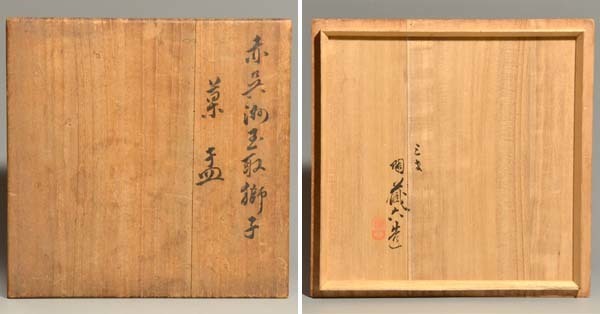 赤呉洲玉取獅子
菓盂
三代
陶蔵六造